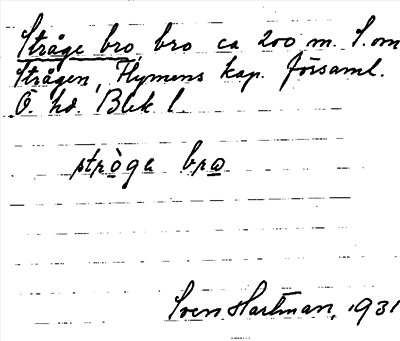 Stråge bro, bro ca 200 m. S. om
Strågen, Flymens kap. församl.
Ö hd Blek l.
stròga bro
Sven Hartman, 1931